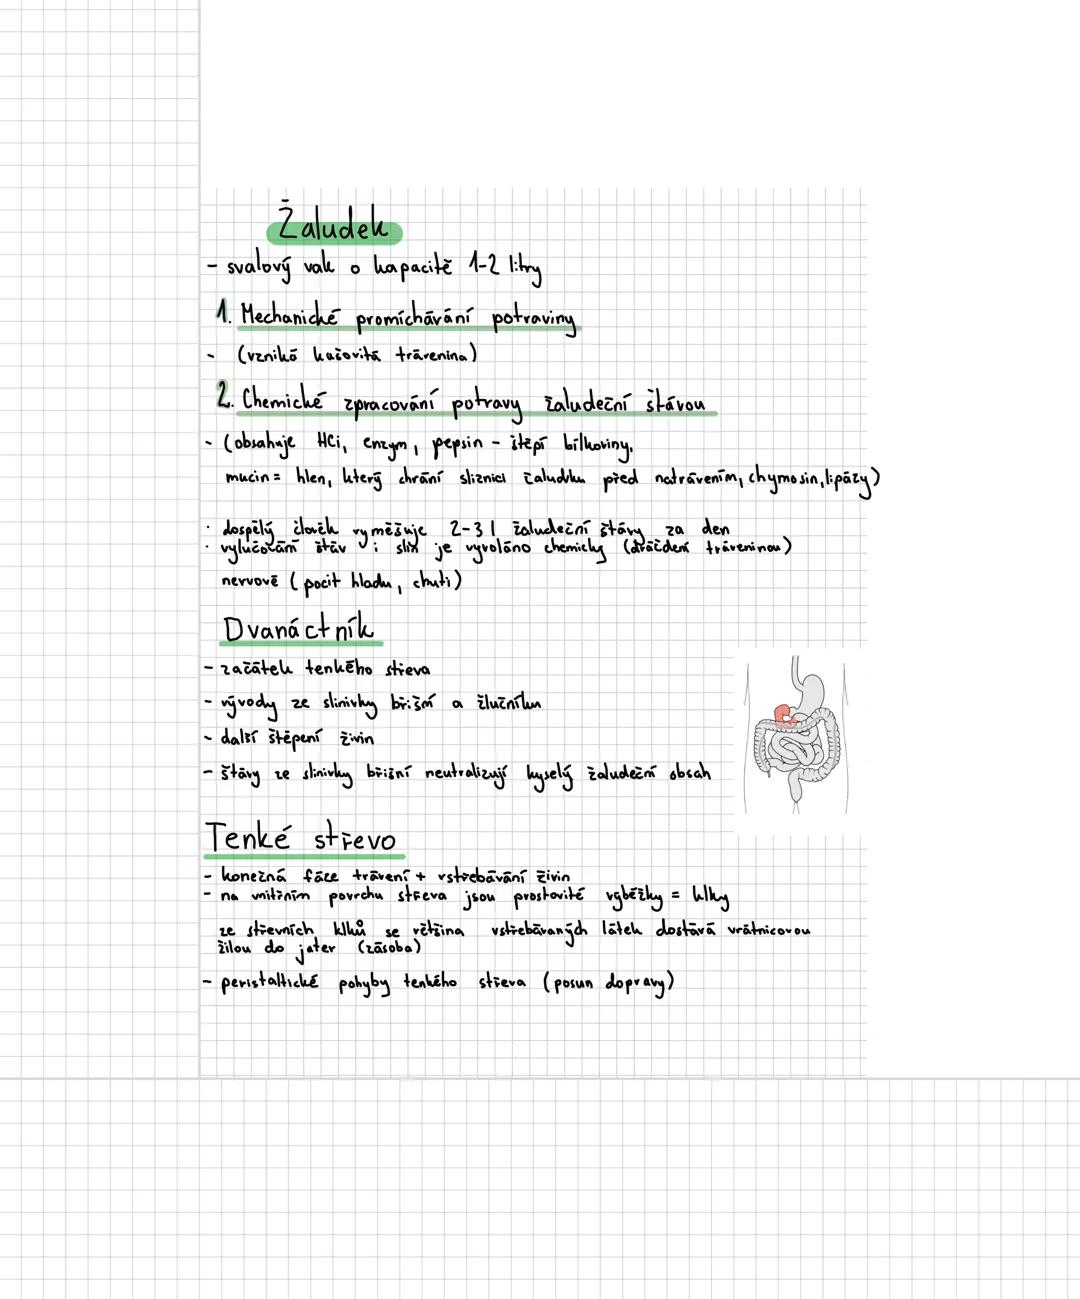 Žaludek
- svalový vak o kapacitě 1-2 litry
1. Mechanické promíchávání potraviny
- (vzniká kašovitá trávenina)
2. Chemické zpracování potravy žaludeční šťávou
- (obsahuje HCi, enzym, pepsin - štěpí bílkoviny,
mucin = hlen, který chrání sliznici žaludku před natrávením, chymosin, lipázy)
· dospělý člověk vyměšuje 2-3 l žaludeční šťávy za den
· vylučování šťáv i slin je vyvoláno chemicky (dráždění tráveninou)
nervově (pocit hladu, chuti)
Dvanáctník
- začátek tenkého střeva
- vývody ze slinivky břišní a žlučníku
- další štěpení živin
- šťávy ze slinivky břišní neutralizují kyselý žaludeční obsah
Tenké střevo
- konečná fáze trávení + vstřebávání živin
- na vnitřním povrchu střeva jsou prstovité výběžky = klky
ze střevních klků se většina vstřebávaných látek dostává vrátnicovou
žilou do jater (zásoba)
- peristaltické pohyby tenkého střeva (posun dopravy)